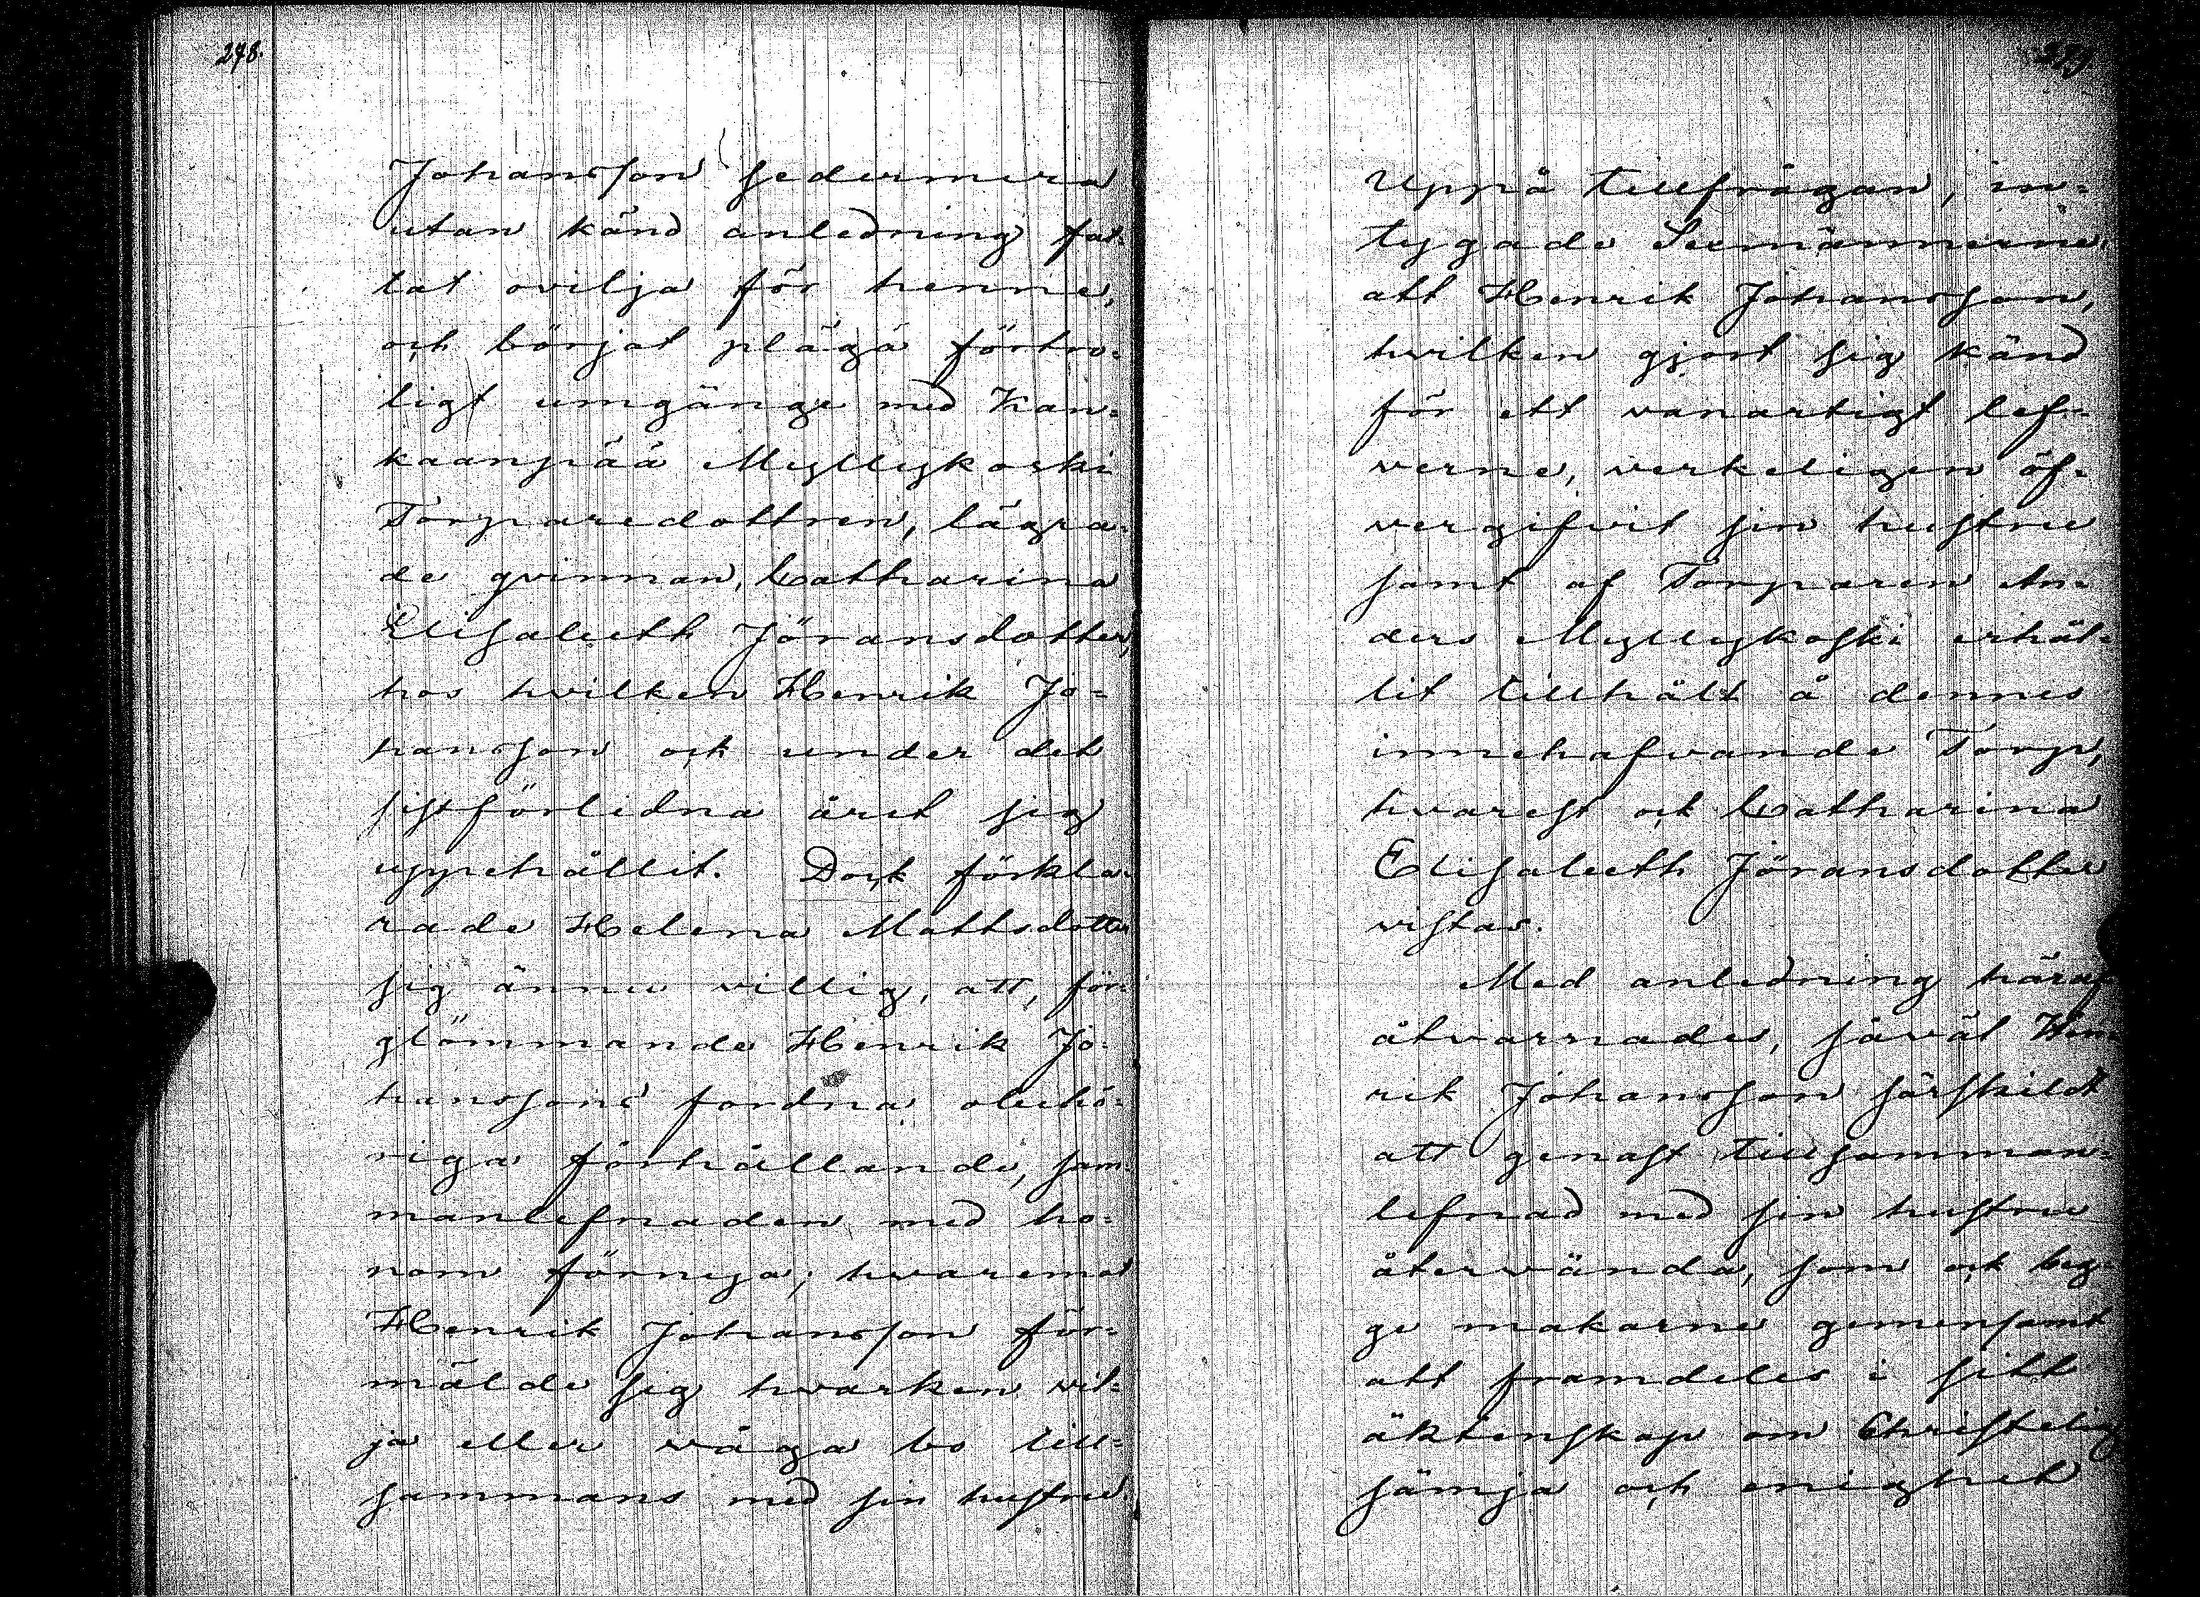 278.
Johansson sedermera
utan känd anledning fat-
tat ovilja för henne,
och börjat pläga förtro-
ligt umgänge med Kan-
kaanpää Myllykoski
Torparedottren, lägra-
de qvinnan, Catharina
Elisabeth Jöransdotter,
hos hvilken Henrik Jo-
hansson ock under det
sistförlidna året sig
uppehållit. Dock förkla-
rade Helena Mattsdotter
sig ännu villig, att, för-
glömmande Henrik Jo-
hanssons fordna obehö-
riga förhållande, sam-
manlefnaden med ho-
nom förnya; hvaremot
Henrik Johansson för-
mälde sig hvarken vil-
ja eller våga bo till-
sammans med sin hustru.
279.
Uppå tillfrågan, in-
tygade Sexmännerne,
att Henrik Johansson,
hvilken gjort sig känd
för ett vanartigt lef-
verne, verkeligen öf-
vergifvit sin hustru
samt af Torparen An-
ders Myllykoski erhål-
lit tillhålt å dennes
innehafvande Torp,
hvarest ock Catharina
Elisabeth Jöransdotter
vistas.
Med anledning häraf
åtvarnades, såväl Hen-
rik Johansson särskildt
att genast till samman-
lefnad med sin hustru
återvända, som ock beg-
ge makarne gemensamt
att framdeles i sitt
äktenskap om Christelig
sämja och enighet